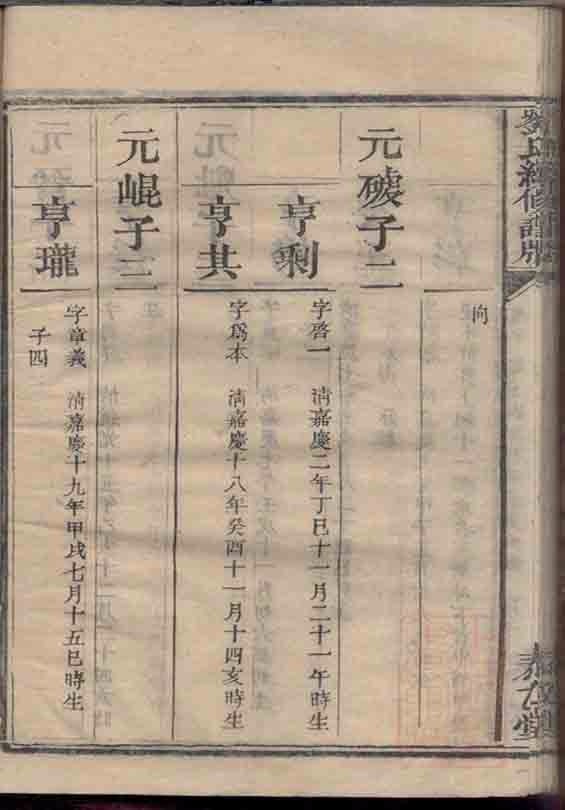 劉氏續修譜牒
向
元㯋子二
亨剩
字啓一 清嘉慶二年丁巳十一月二十一午時生
亨共
字爲本 清嘉慶十八年癸酉十一月十四亥時生
元崐子二
亨瓏
字章義 清嘉慶十九年甲戌七月十五巳時生
子四